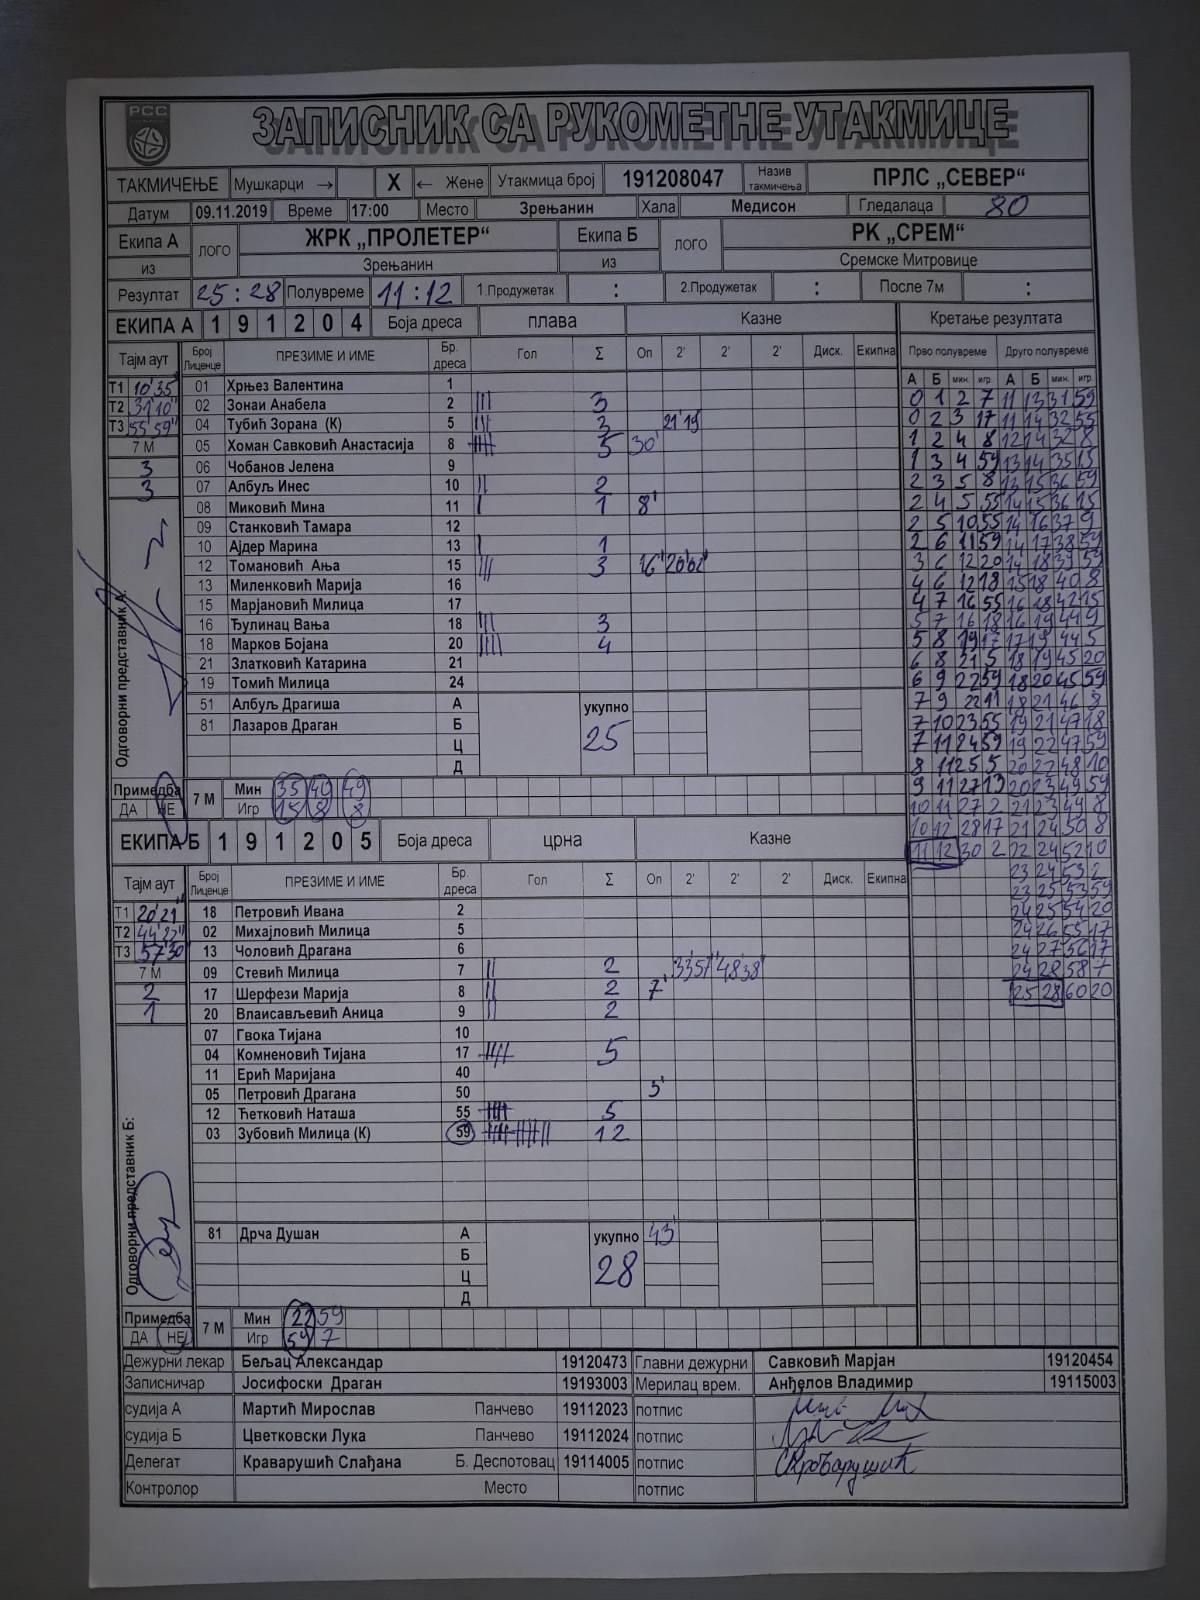 РСС
ЗАПИСНИК СА РУКОМЕТНЕ УТАКМИЦЕ
ТАКМИЧЕЊЕ Мушкарци → X ← Жене Утакмица број 191208047 Назив такмичења ПРЛС „СЕВЕР“
Датум 09.11.2019 Време 17:00 Место Зрењанин Хала Медисон Гледалаца 80
Екипа А ЛОГО ЖРК „ПРОЛЕТЕР“ Екипа Б ЛОГО РК „СРЕМ“
из Зрењанин из Сремске Митровице
Резултат 25 : 28 Полувреме 11 : 12 1.Продужетак : 2.Продужетак : После 7м :
ЕКИПА А 1 9 1 2 0 4 Боја дреса плава Казне Кретање резултата
Тајм аут Број Лиценце ПРЕЗИМЕ И ИМЕ Бр. дреса Гол Σ Оп 2' 2' 2' Диск. Екипна Прво полувреме Друго полувреме
А Б мин. игр. А Б мин. игр.
Т1 10'35" 01 Хрњез Валентина 1
Т2 31'10" 02 Зонаи Анабела 2 3
Т3 55'59" 04 Тубић Зорана (К) 5 3 21'19"
7 М 05 Хоман Савковић Анастасија 8 5 30'
3 06 Чобанов Јелена 9
3 07 Албуљ Инес 10 2
08 Миковић Мина 11 1 8'
09 Станковић Тамара 12
10 Ајдер Марина 13 1
12 Томановић Ања 15 3 16'
13 Миленковић Марија 16
15 Марјановић Милица 17
16 Ђулинац Вања 18 3
18 Марков Бојана 20 4
21 Златковић Катарина 21
19 Томић Милица 24
51 Албуљ Драгиша А укупно
81 Лазаров Драган Б 25
Ц
Д
Одговорни представник А:
Примедба ДА НЕ 7 М Мин 35 40 49
Игр 15 8 8
0 1 2 7 11 13 31 59
0 2 3 17 11 14 32 55
1 2 4 8 12 14 32 8
1 3 4 59 13 14 35 15
2 3 5 8 13 15 36 59
2 4 5 55 14 15 36 15
2 5 10 55 14 16 37 9
2 6 11 59 14 17 38 59
3 6 12 20 14 18 39 59
4 6 12 18 15 18 40 8
4 7 16 55 16 18 42 15
5 7 16 18 16 19 44 9
5 8 19 17 17 19 44 5
6 8 21 5 18 19 45 20
6 9 22 59 18 20 45 59
7 9 22 11 18 21 46 8
7 10 23 55 19 21 47 18
7 11 24 59 19 22 47 59
8 11 25 5 20 22 48 10
9 11 27 13 20 23 49 59
10 11 27 2 21 23 49 8
10 12 28 17 21 24 50 8
11 12 30 2 22 24 52 10
23 24 53 2
23 25 53 59
24 25 54 20
24 26 55 17
24 27 56 17
24 28 58 7
25 28 60 20
ЕКИПА Б 1 9 1 2 0 5 Боја дреса црна Казне
Тајм аут Број Лиценце ПРЕЗИМЕ И ИМЕ Бр. дреса Гол Σ Оп 2' 2' 2' Диск. Екипна
Т1 20'21" 18 Петровић Ивана 2
Т2 44'22" 02 Михајловић Милица 5
Т3 57'30 13 Чоловић Драгана 6
7 М 09 Стевић Милица 7 2 33'57" 48'38"
2 17 Шерфези Марија 8 2 7'
1 20 Влаисављевић Аница 9 2
07 Гвока Тијана 10
04 Комненовић Тијана 17 5
11 Ерић Маријана 40
05 Петровић Драгана 50 5'
12 Ћетковић Наташа 55 5
03 Зубовић Милица (К) 59 12
81 Дрча Душан А укупно 43'
Б 28
Ц
Д
Одговорни представник Б:
Примедба ДА НЕ 7 М Мин 22 59
Игр 59 7
Дежурни лекар Бељац Александар 19120473 Главни дежурни Савковић Марјан 19120454
Записничар Јосифоски Драган 19193003 Мерилац врем. Анђелов Владимир 19115003
судија А Мартић Мирослав Панчево 19112023 потпис
судија Б Цветковски Лука Панчево 19112024 потпис
Делегат Краварушић Слађана Б. Деспотовац 19114005 потпис СКраварушић
Контролор Место потпис